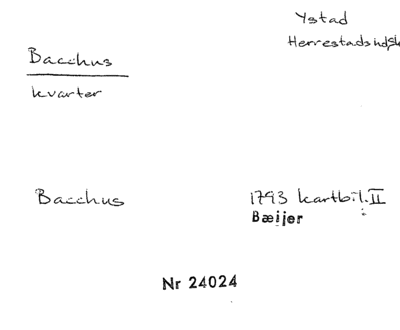 Ystad
Herrestads hd
Bacchus
kvarter
Bacchus
1793 kartbil. II
Bæijer
Nr 24024